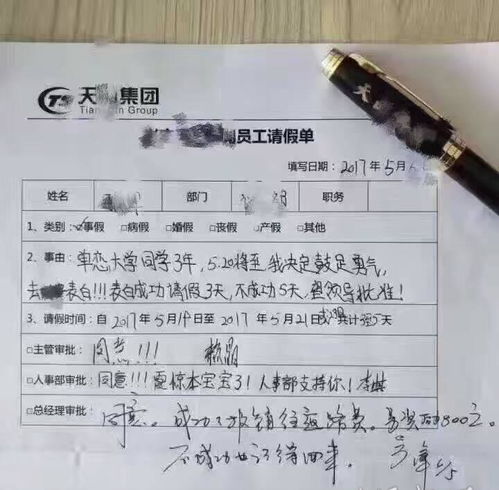 天 集团
Group
员工请假单
填写日期: 2017年5月
姓名 部门 职务
1、类别: ☑事假 □病假 □婚假 □丧假 □产假 □其他
2、事由: 单恋大学同学3年, 5.20将至, 我决定鼓足勇气,
去 表白!!! 表白成功请假3天, 不成功5天, 望领导批准!
3、请假时间: 自2017年5月19日至2017年5月21日 共计 5天
□主管审批: 同意!!!
□人事部审批: 同意!!! 震惊本宝宝了! 人事部支持你!
□总经理审批: 同意。成功了报销往返路费。 800元。
不成功也记得回来。
天